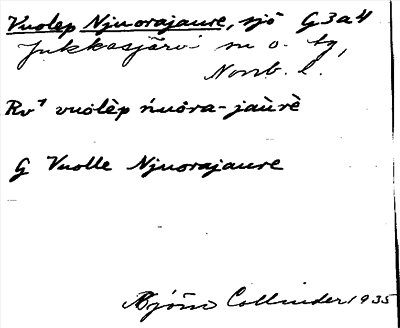 Vuolep Njuorajaure, sjö G3a4
Jukkasjärvi sn o. tg,
Norrb. l.
Rv¹ vuolèp ńuòra-jaùrè
G Vuolle Njuorajaure
Björn Collinder 1935